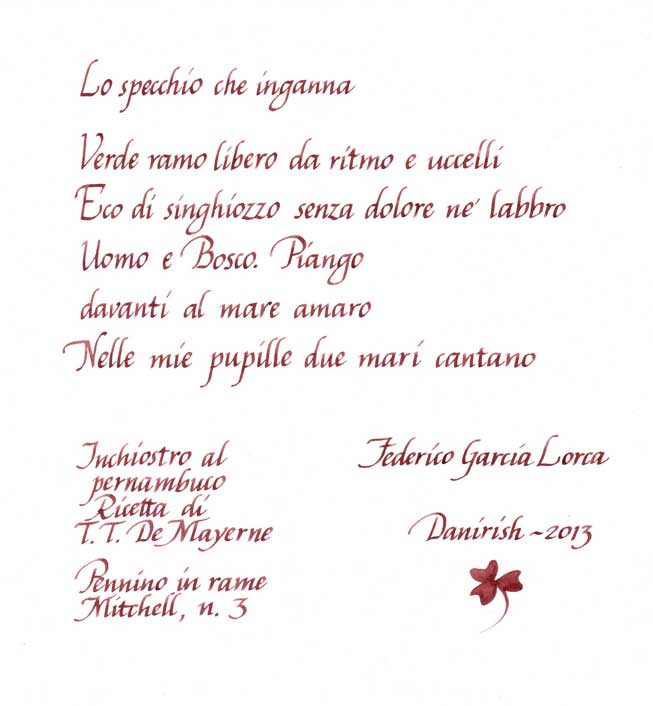 Lo specchio che inganna
Verde ramo libero da ritmo e uccelli
Eco di singhiozzo senza dolore ne' labbro
Uomo e Bosco. Piango
davanti al mare amaro
Nelle mie pupille due mari cantano
Inchiostro al
pernambuco
Ricetta di
T. T. De Mayerne
Pennino in rame
Mitchell, n. 3
Federico Garcia Lorca
Danirish ~ 2013